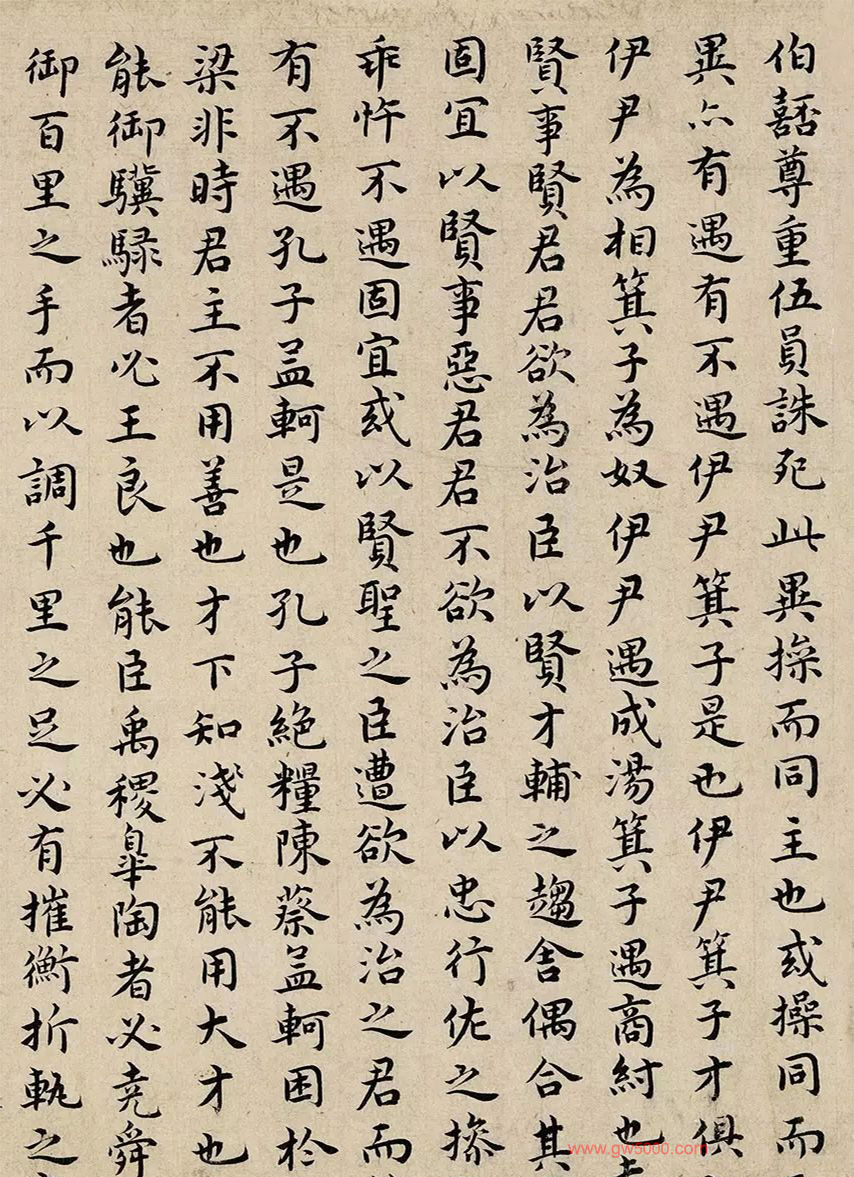 伯嚭尊重伍員誅死此異操而同主也或操同而
異亦有遇有不遇伊尹箕子是也伊尹箕子才俱
伊尹為相箕子為奴伊尹遇成湯箕子遇商紂也
賢事賢君君欲為治臣以賢才輔之趨舍偶合其
固宜以賢事惡君君不欲為治臣以忠行佐之操
乖忤不遇固宜或以賢聖之臣遭欲為治之君而
有不遇孔子孟軻是也孔子絕糧陳蔡孟軻困於
梁非時君主不用善也才下知淺不能用大才也
能御驥騄者必王良也能臣禹稷皋陶者必堯舜
御百里之手而以調千里之足必有摧衡折軛之
www.gw5000.com